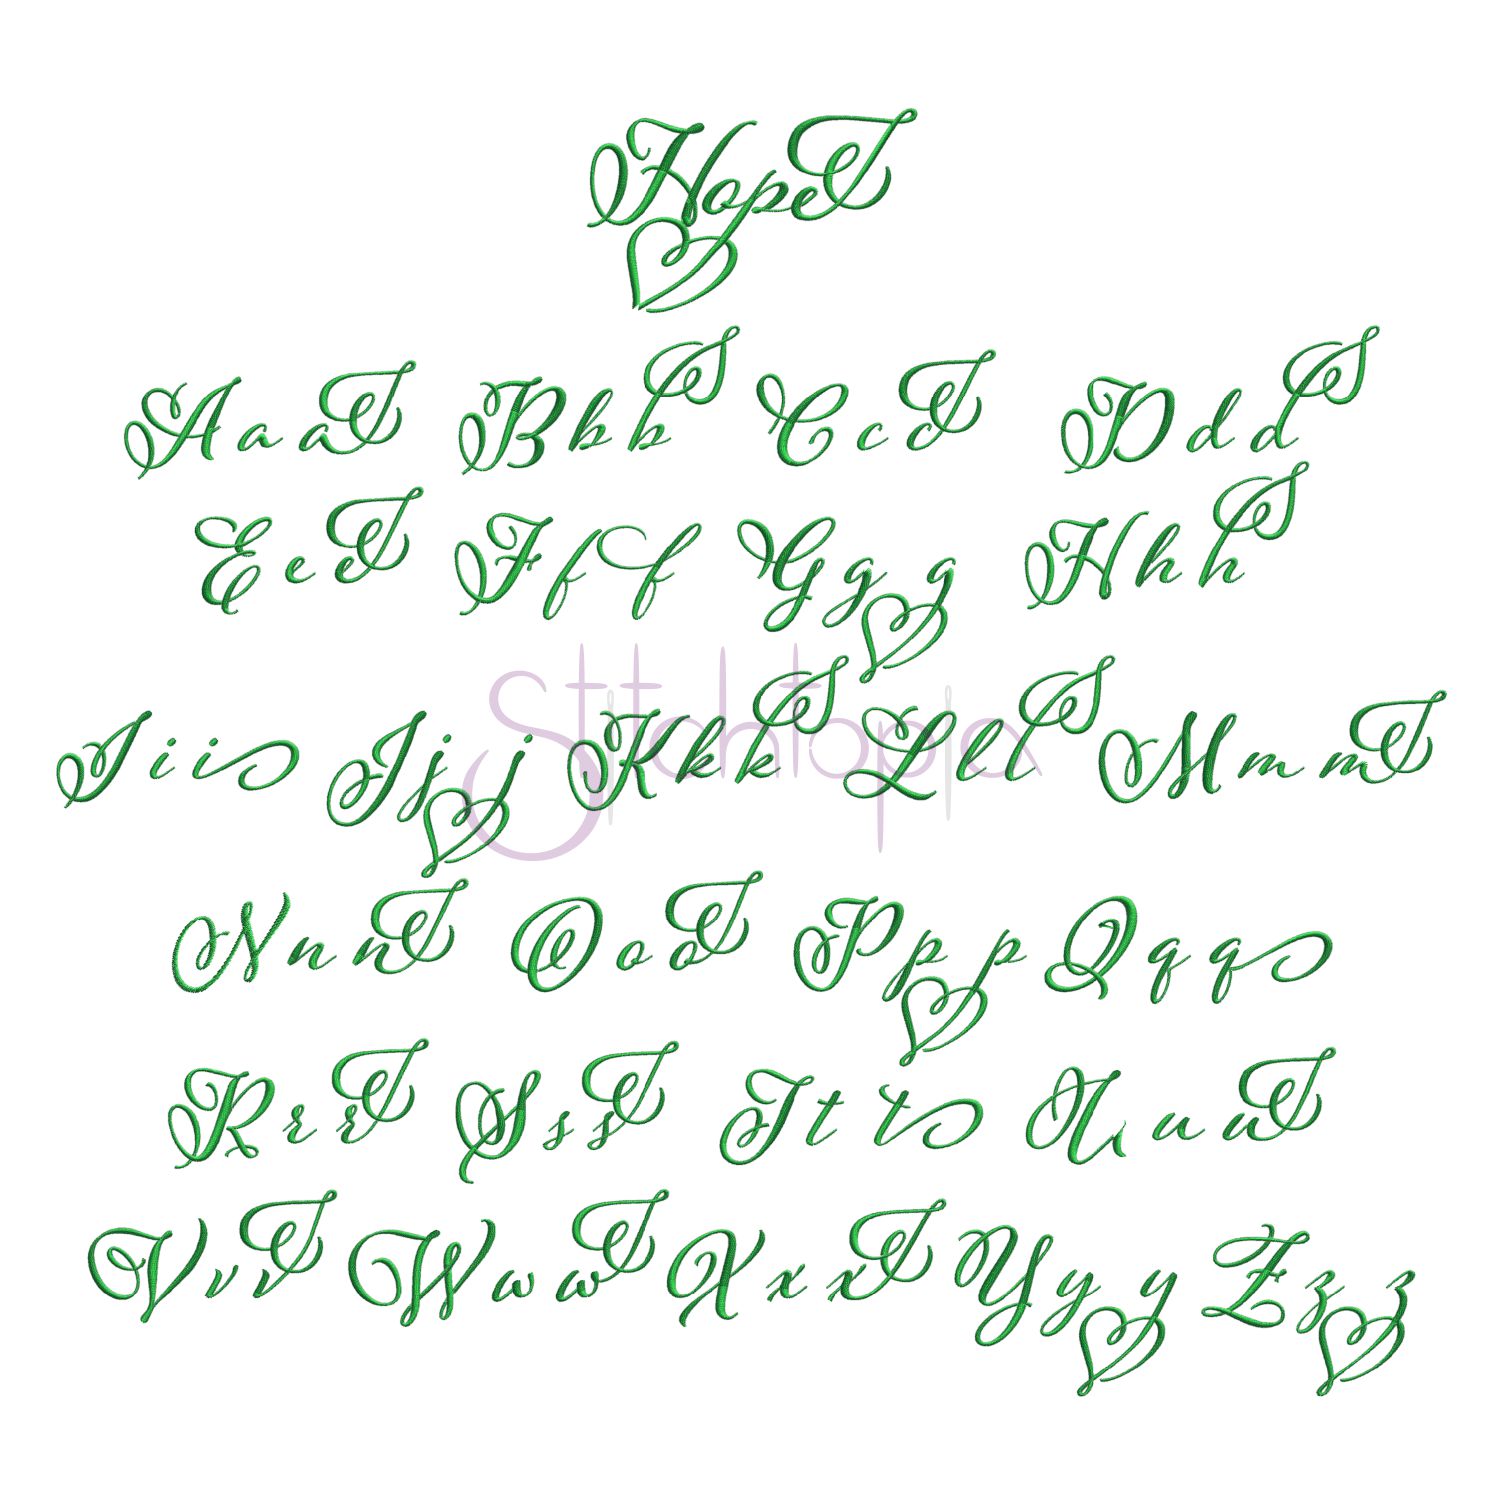 Hope
Aaa Bbb Ccc Ddd
Eee Fff Ggg Hhh
Stitchtopia
Iii Jjj Kkk Lll Mmm
Nnn Ooo Ppp Qqq
Rrr Sss Ttt Uuu
Vvv Www Xxx Yyy Zzz